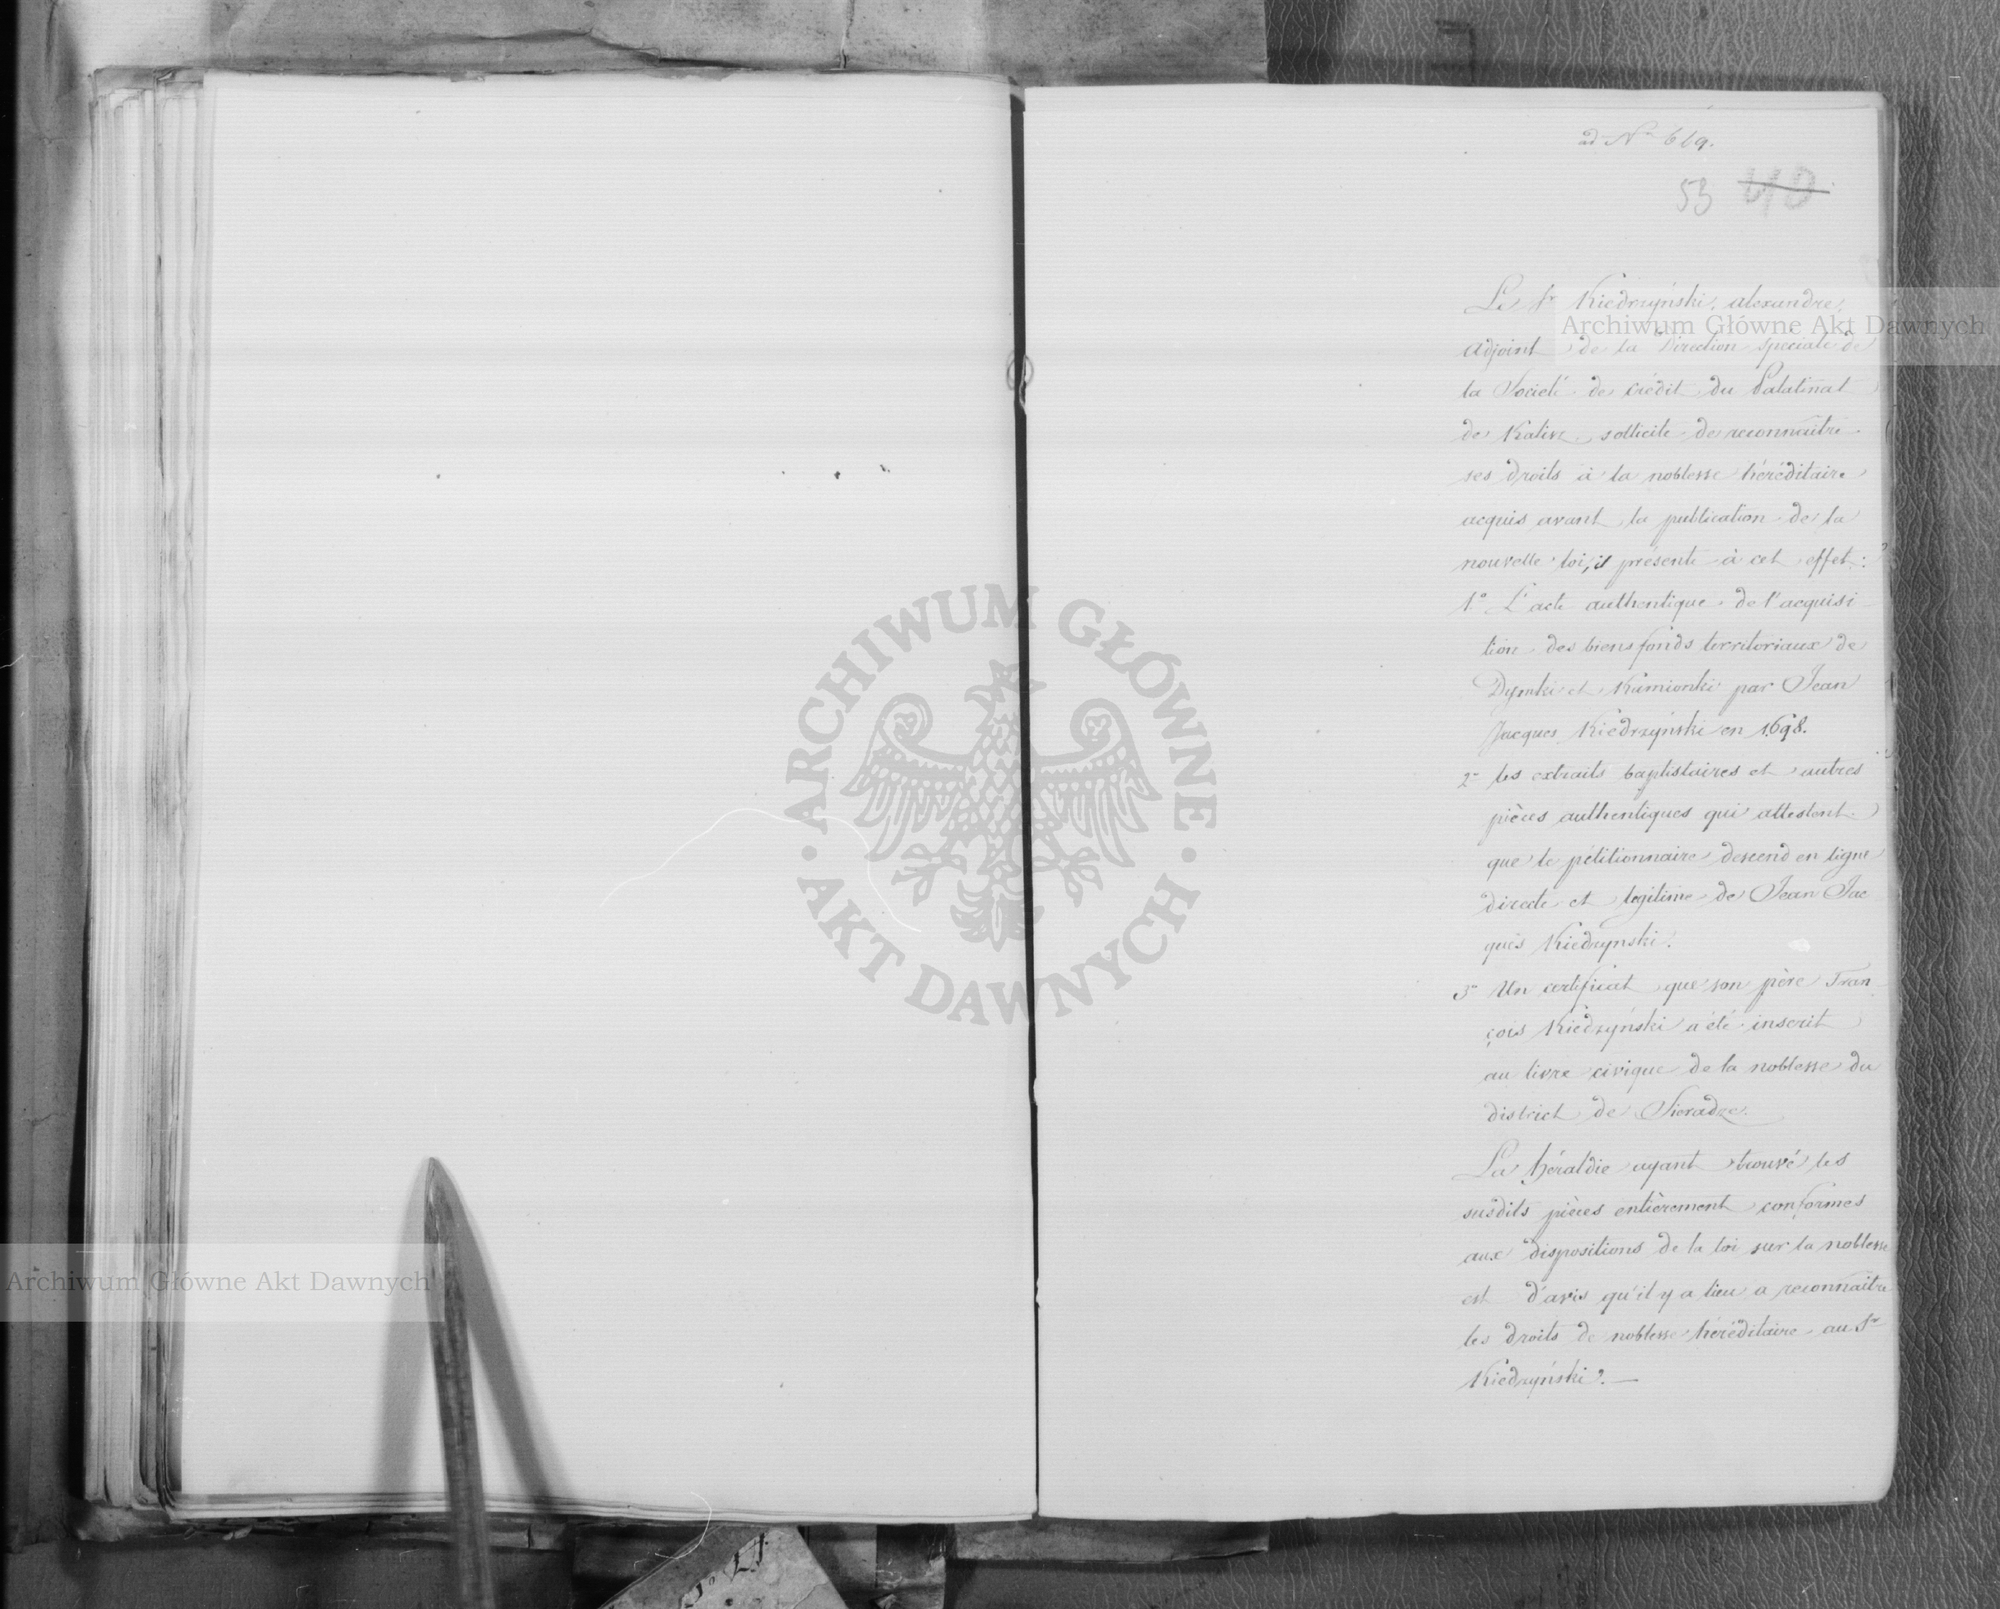 ad Nº 669.
53 40
Le Sr Kiedrzyński, alexandre,
Adjoint de la Direction speciale de
la Societé de crédit du Palatinat
de Kalisz, sollicite de reconnaitre
ses droits à la noblesse héréditaire
acquis avant la publication de la
nouvelle loi, il présente à cet effet:
1º L'acte authentique de l'acquisi
tion des biens fonds territoriaux de
Dymki et Kamionki par Jean
Jacques Kiedrzyński en 1698.
2º les extraits baptistaires et autres
pièces authentiques qui attestent
que le pétitionnaire descend en ligne
directe et legitime de Jean Jac
ques Kiedrzynski.
3º Un certificat que son père Fran
çois Kiedrzyński a été inscrit
au livre civique de la noblesse du
district de Sieradz.
La héraldie ayant trouvé les
susdits pièces entièrement conformes
aux dispositions de la loi sur la noblesse
est d'avis qu'il y a lieu a reconnaitre
les droits de noblesse héréditaire au Sr
Kiedrzyński. —
Archiwum Główne Akt Dawnych
Archiwum Główne Akt Dawnych
ARCHIWUM GŁÓWNE
AKT DAWNYCH